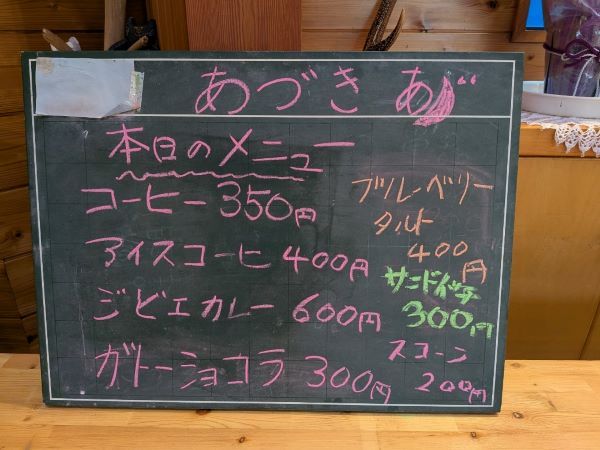 あづき あ゛
本日のメニュー
コーヒー 350円
アイスコーヒ 400円
ジビエカレー 600円
ガトーショコラ 300円
ブルーベリー
タルト
400円
サンドイッチ
300円
スコーン
200円